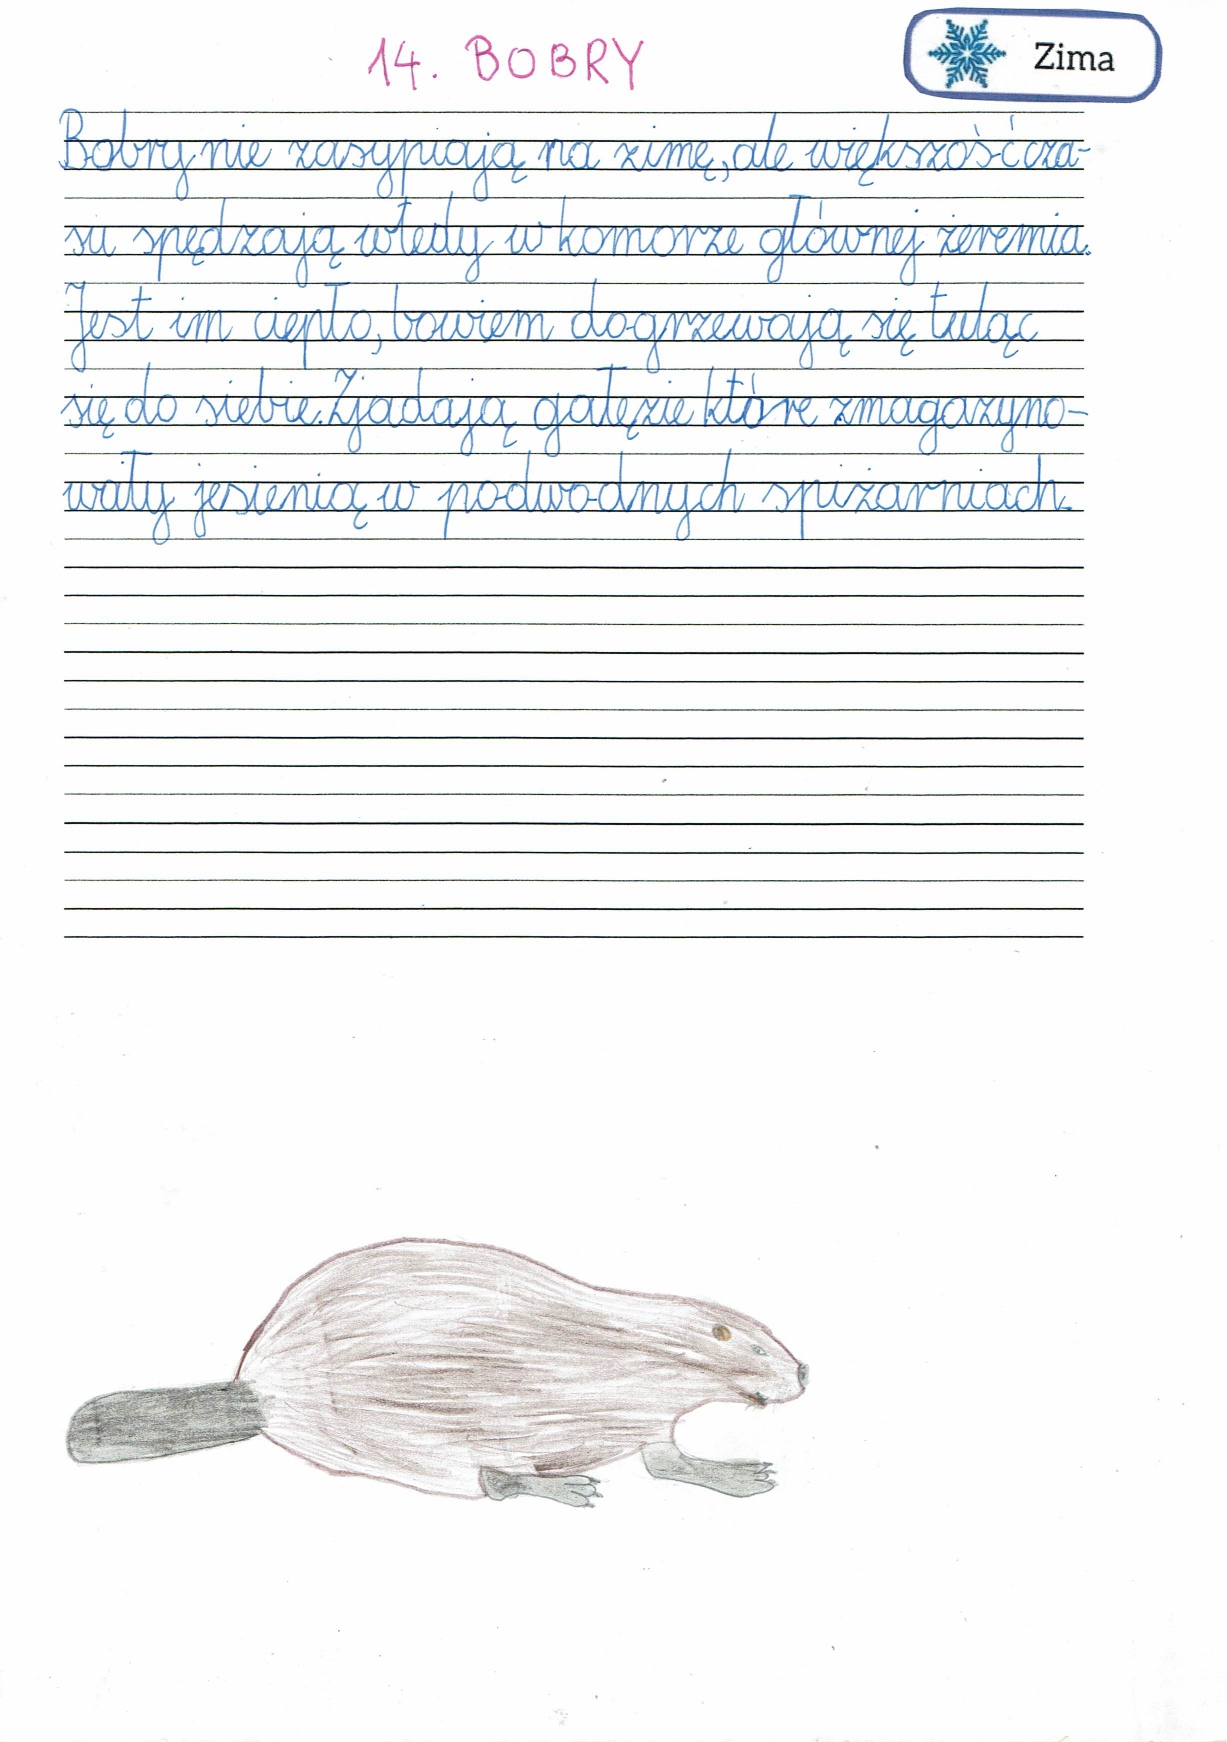 14. BOBRY
Zima
Bobry nie zasypiają na zimę, ale większość cza-
su spędzają wtedy w komorze głównej żeremia.
Jest im ciepło, bowiem dogrzewają się tuląc
się do siebie. Zjadają gałęzie które zmagazyno-
wały jesienią w podwodnych spiżarniach.